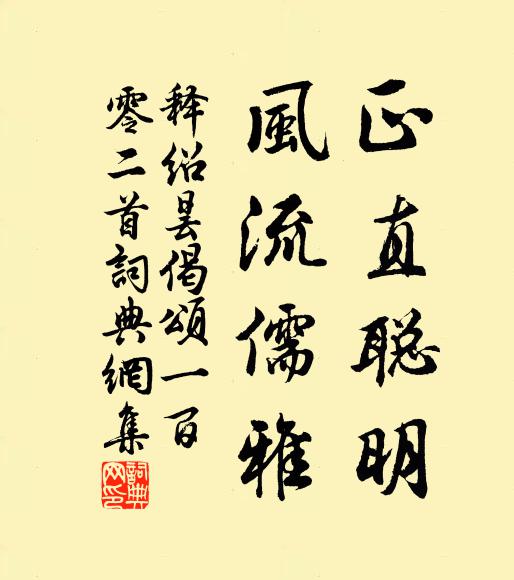 正直聪明
風流儒雅
释绍昙偈頌一百
零二首詞典網集
詞典网印